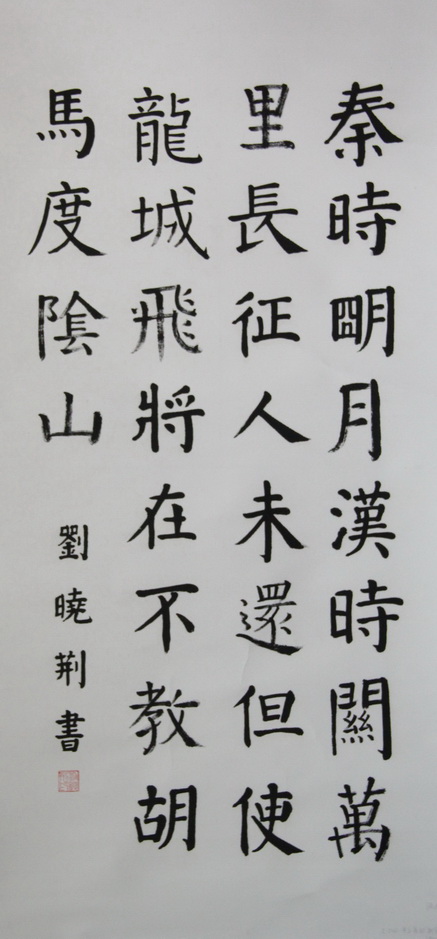 秦時朙月漢時關萬
里長征人未還但使
龍城飛將在不教胡
馬度陰山
劉曉荆書